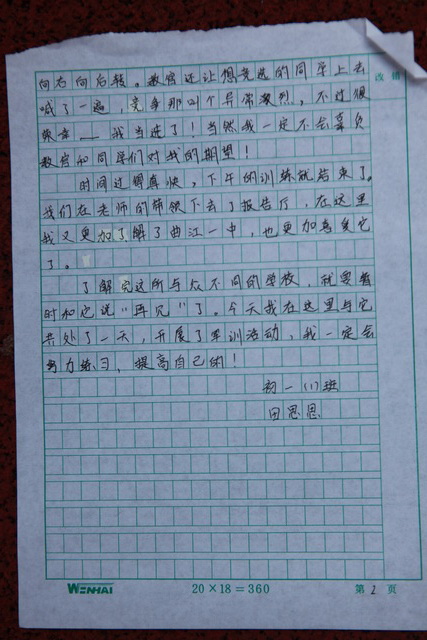 向右向后转。教官还让想竞选的同学上去
改错
喊了一遍，竞争那叫个异常激烈，不过很
荣幸——我当选了！当然我一定不会辜负
教官和同学们对我的期望！
时间过得真快，下午的训练就结束了。
我们在老师的带领下去了报告厅，在这里
我又更加了解了曲江一中，也更加喜爱它
了。
了解完这所与众不同的学校，就要暂
时和它说“再见”了。今天我在这里与它
共处了一天，开展了军训活动，我一定会
努力练习，提高自己的！
初一(1)班
田思思
WENHAI
20×18=360
第2页